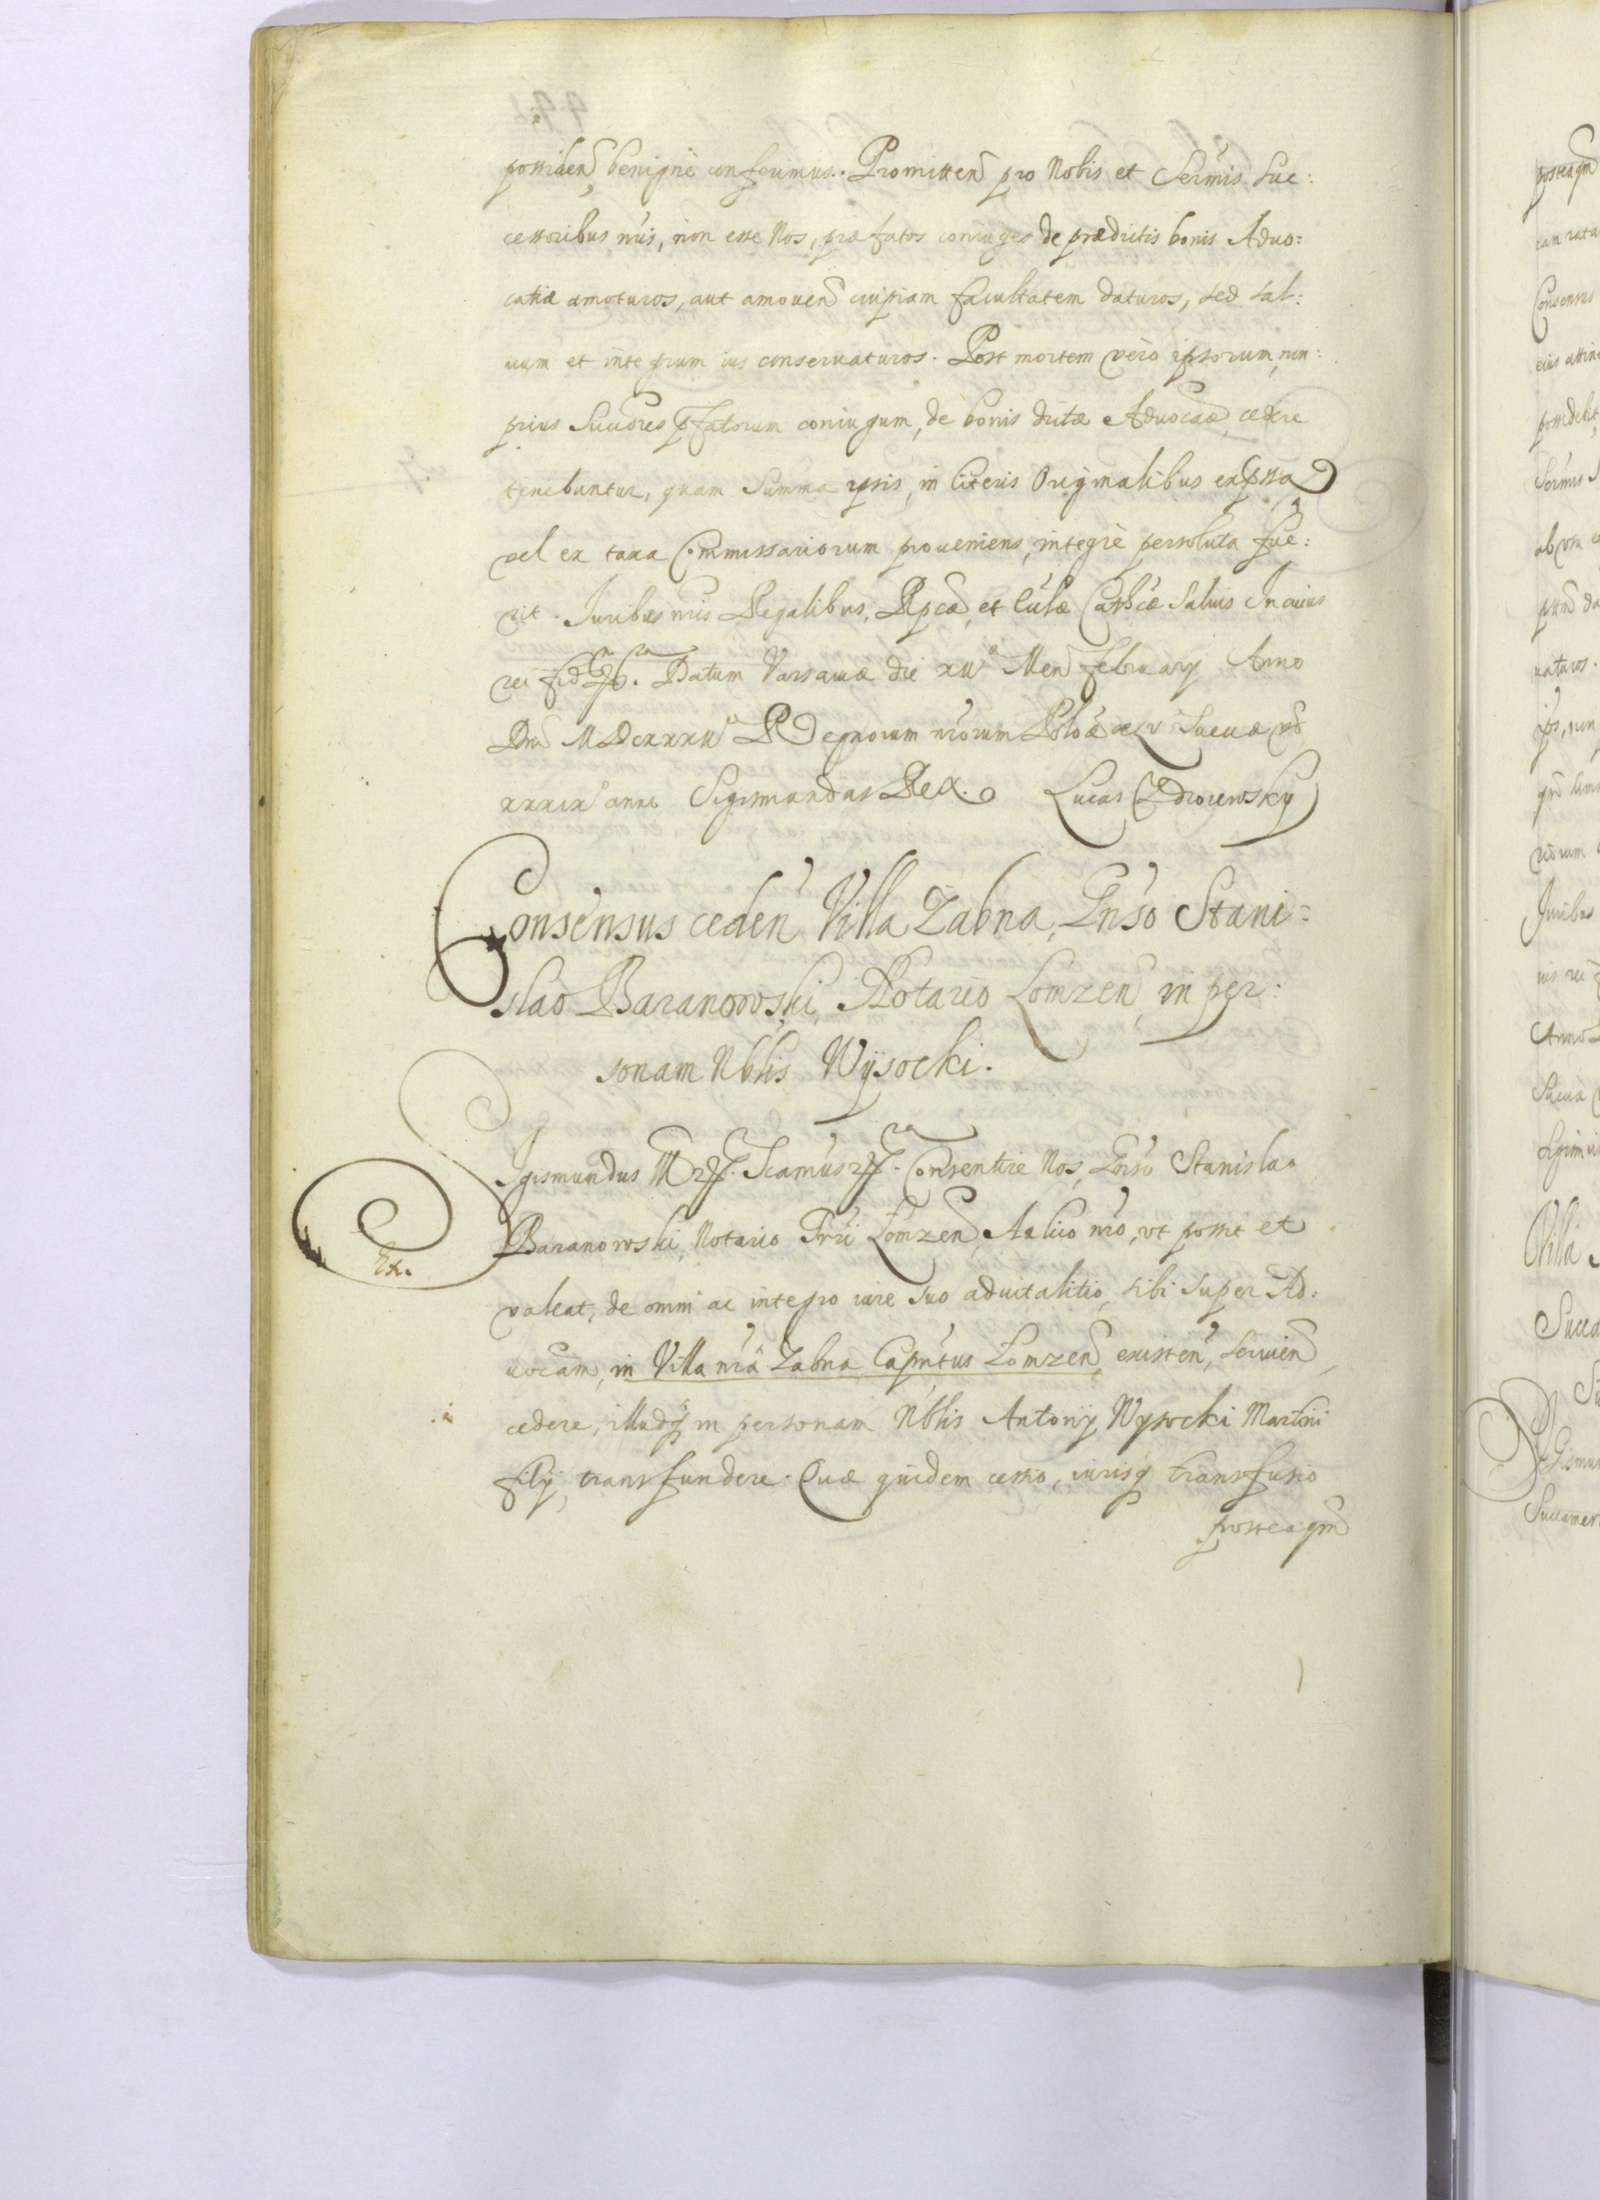 possiden, benignè conferimus. Promitten pro Nobis et Sermis Suc:
cessoribus nris, non esse Nos, præfatos coniuges de prædictis bonis Aduo:
catiæ amoturos, aut amouen cuipiam facultatem daturos, sed sal:
uum et integrum ius conseruaturos. Post mortem vero ipsorum, non
prius Succores pfatorum coniugum, de bonis dictæ Aduocaæ, cedere
tenebuntur, quam Summa ipsis, in literis Originalibus expssa
vel ex taxa Commissariorum proueniens, integrè persoluta fue:
rit. Juribus nris Regalibus, Reipcæ, et Ecclæ Cathcæ Saluis In cuius
rei fid. Datum Varsauiæ die Men February Anno
Dni MDCXXXII Regnorum nrorum Poloæ XLV Sueuæ vo
xxxix anno Sigismundus Rex. Lucas Zdroiewsky
Consensus ceden Villa Zabna, Gnso Stani=
slao Baranowski, Notario Lomzen, in per:
sonam Nblis Wysocki.
Sigismundus III Scamus Consentire Nos, Gnso Stanislao
Baranowski, Notario Trri Lomzen, Aulico nro, vt possit et
Ex.
valeat, de omni ac integro iure suo aduitalitio, sibi super Ad:
uocam, in Villa nra Zabna Capntus Lomzen, existen, seruien,
cedere, illudq in personam Nblis Antonij Wysocki Martini
filij, transfundere. Quæ quidem cessio, iurisq transfusio
posteaqm